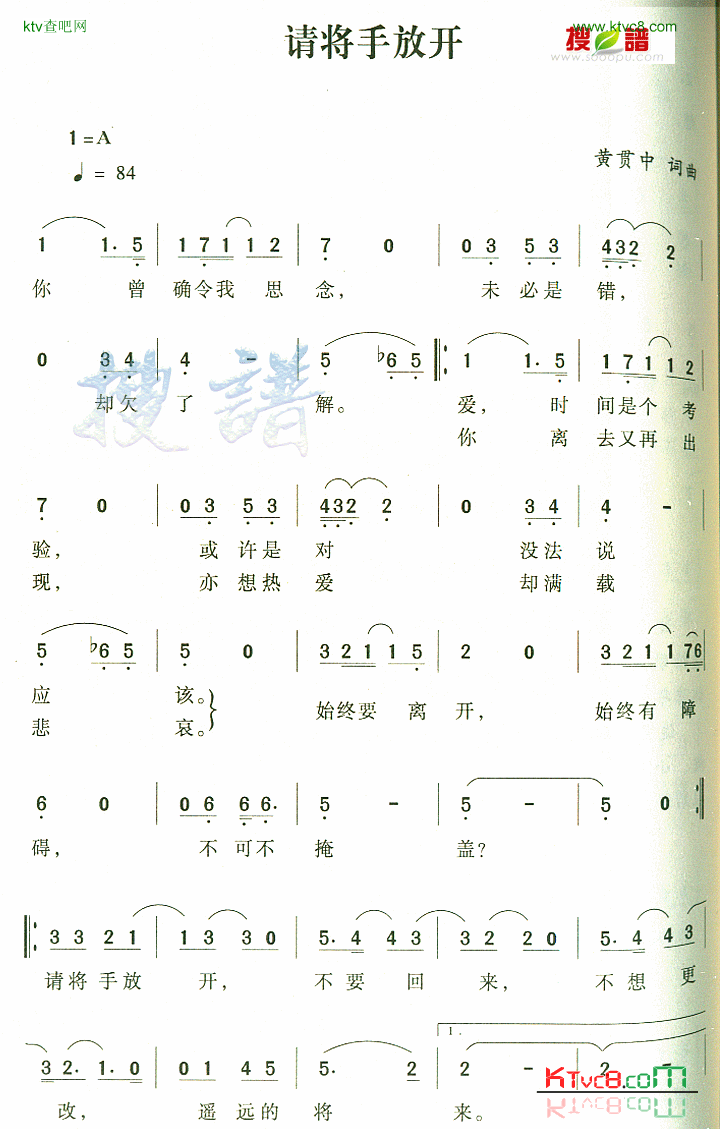 ktv查吧网
请将手放开
www.ktvc8.com
搜譜
www.sooopu.com
1=A
♩= 84
黄贯中 词曲
1 1· 5 | 1 7 1 1 2 | 7 0 | 0 3 5 3 | 4 3 2 2 |
你 曾 确令我 思 念, 未 必是 错,
0 3 4 | 4 - | 5 ♭6 5 |: 1 1· 5 | 1 7 1 1 2
却欠 了 解。 爱, 时 间是个 考
你 离 去又再 出
7 0 | 0 3 5 3 | 4 3 2 2 | 0 3 4 | 4 -
验, 或 许是 对 没法 说
现, 亦 想热 爱 却满 载
5 ♭6 5 | 5 0 | 3 2 1 1 5 | 2 0 | 3 2 1 1 7 6
应 该。 始终要 离 开, 始终有 障
悲 哀。
6 0 | 0 6 6 6· | 5 - | 5 - | 5 0 :|
碍, 不 可不 掩 盖?
|: 3 3 2 1 | 1 3 3 0 | 5· 4 4 3 | 3 2 2 0 | 5· 4 4 3
请将 手放 开, 不 要 回 来, 不 想 更
3 2· 1· 0 | 0 1 4 5 | 5· 2 | 2 - | 2 -
1.
改, 遥 远的 将 来。
KTvc8.com